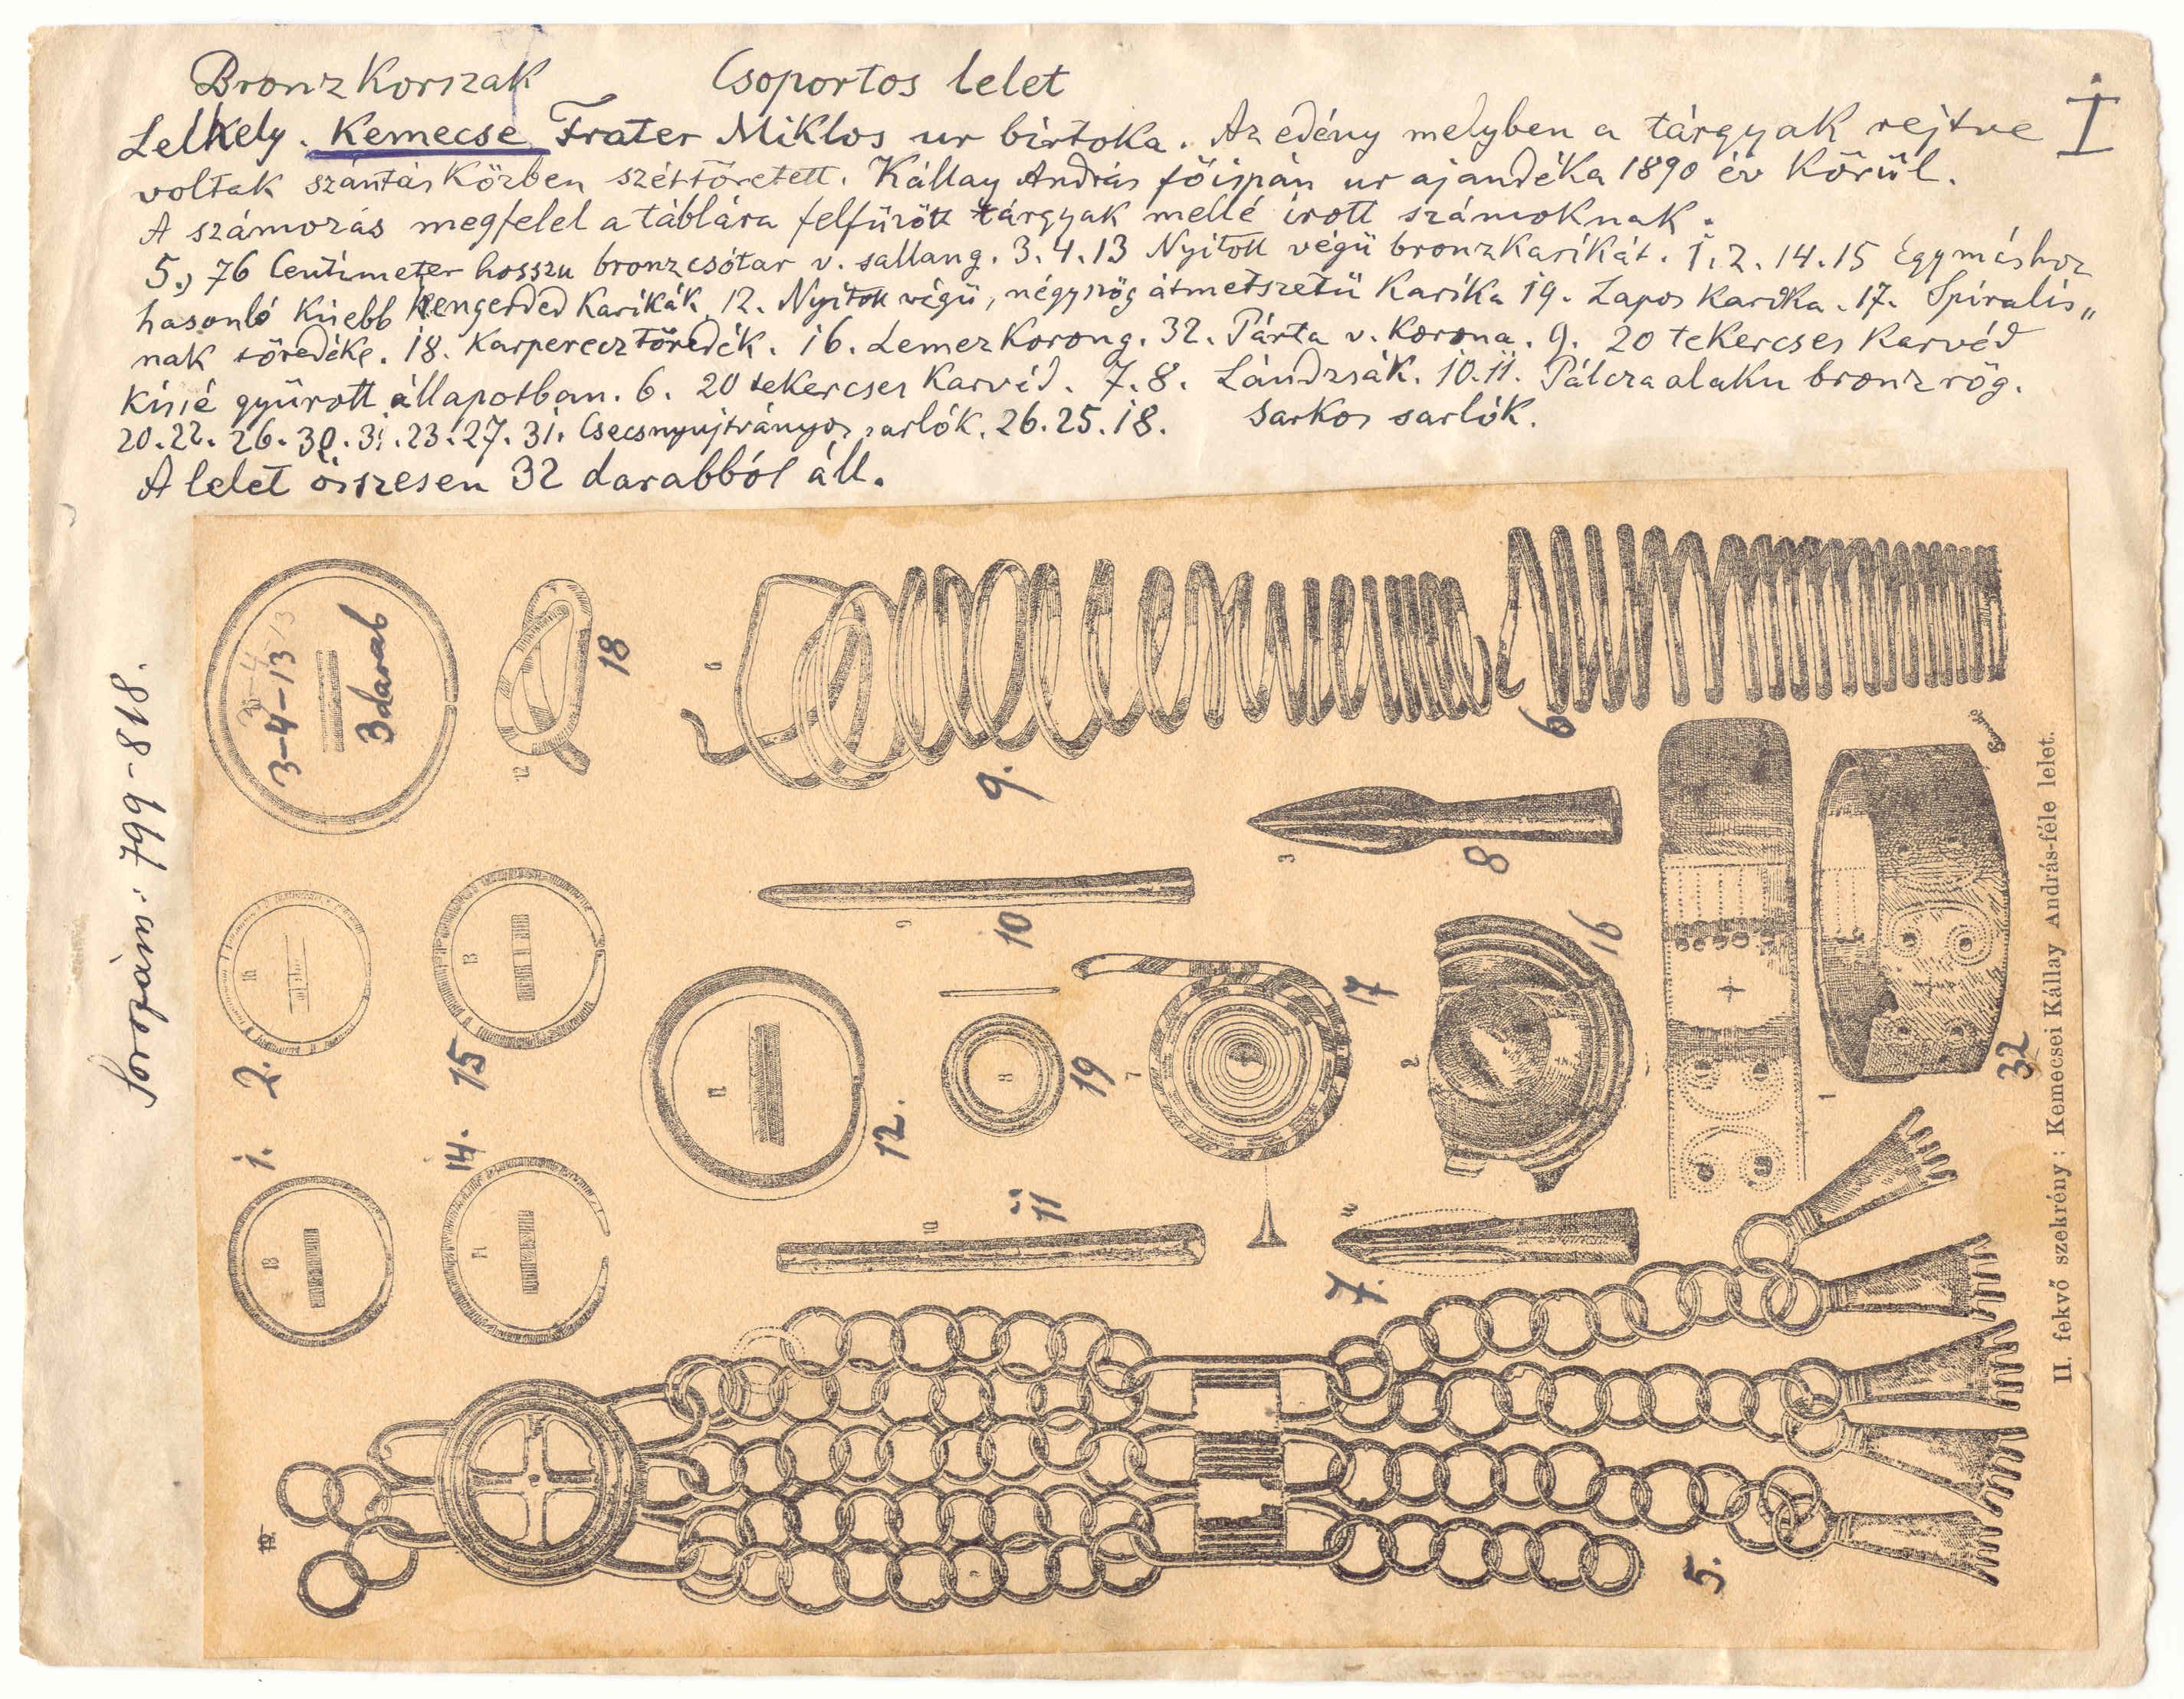 Bronzkorszak Csoportos lelet
I
Lelhely. Kemecse Frater Miklos ur birtoka. Az edény melyben a tárgyak rejtve
voltak szántás közben széttöretett. Kállay András főispán ur ajandéka 1890 év körül.
A számozás megfelel a táblára felfűzött tárgyak mellé irott számoknak.
5., 76 Centimeter hosszu bronzcsótar v. sallang. 3.4.13 Nyitott végü bronzkarikát. 1.2.14.15 Egymáshoz
hasonló kisebb hengerded karikák. 12. Nyitott végü, négyszög átmetszetü karika 19. Lapos karika. 17. Spirális„
nak töredéke. 18. Karperecz töredék. 16. Lemez korong. 32. Párta v. korona. 9. 20 tekercses karvéd
kissé gyürott állapotban. 6. 20 tekercses karvéd. 7.8. Lándzsák. 10.11. Pálcza alaku bronz rög.
20.22. 26.30.31.23.27.31. Csecsnyujtványos sarlók. 26.25.18. Sarkos sarlók.
A lelet összesen 32 darabból áll.
Sorozám. 799-818.
3-4-13
3 darab
18
12
6
9.
6
3
8
9
10
16
2.
13
15
11
12.
8
19
7
17
2
16
1
32
1.
18
14.
14
10
11
4
7.
5.
II. fekvő szekrény; Kemecsei Kállay András-féle lelet.